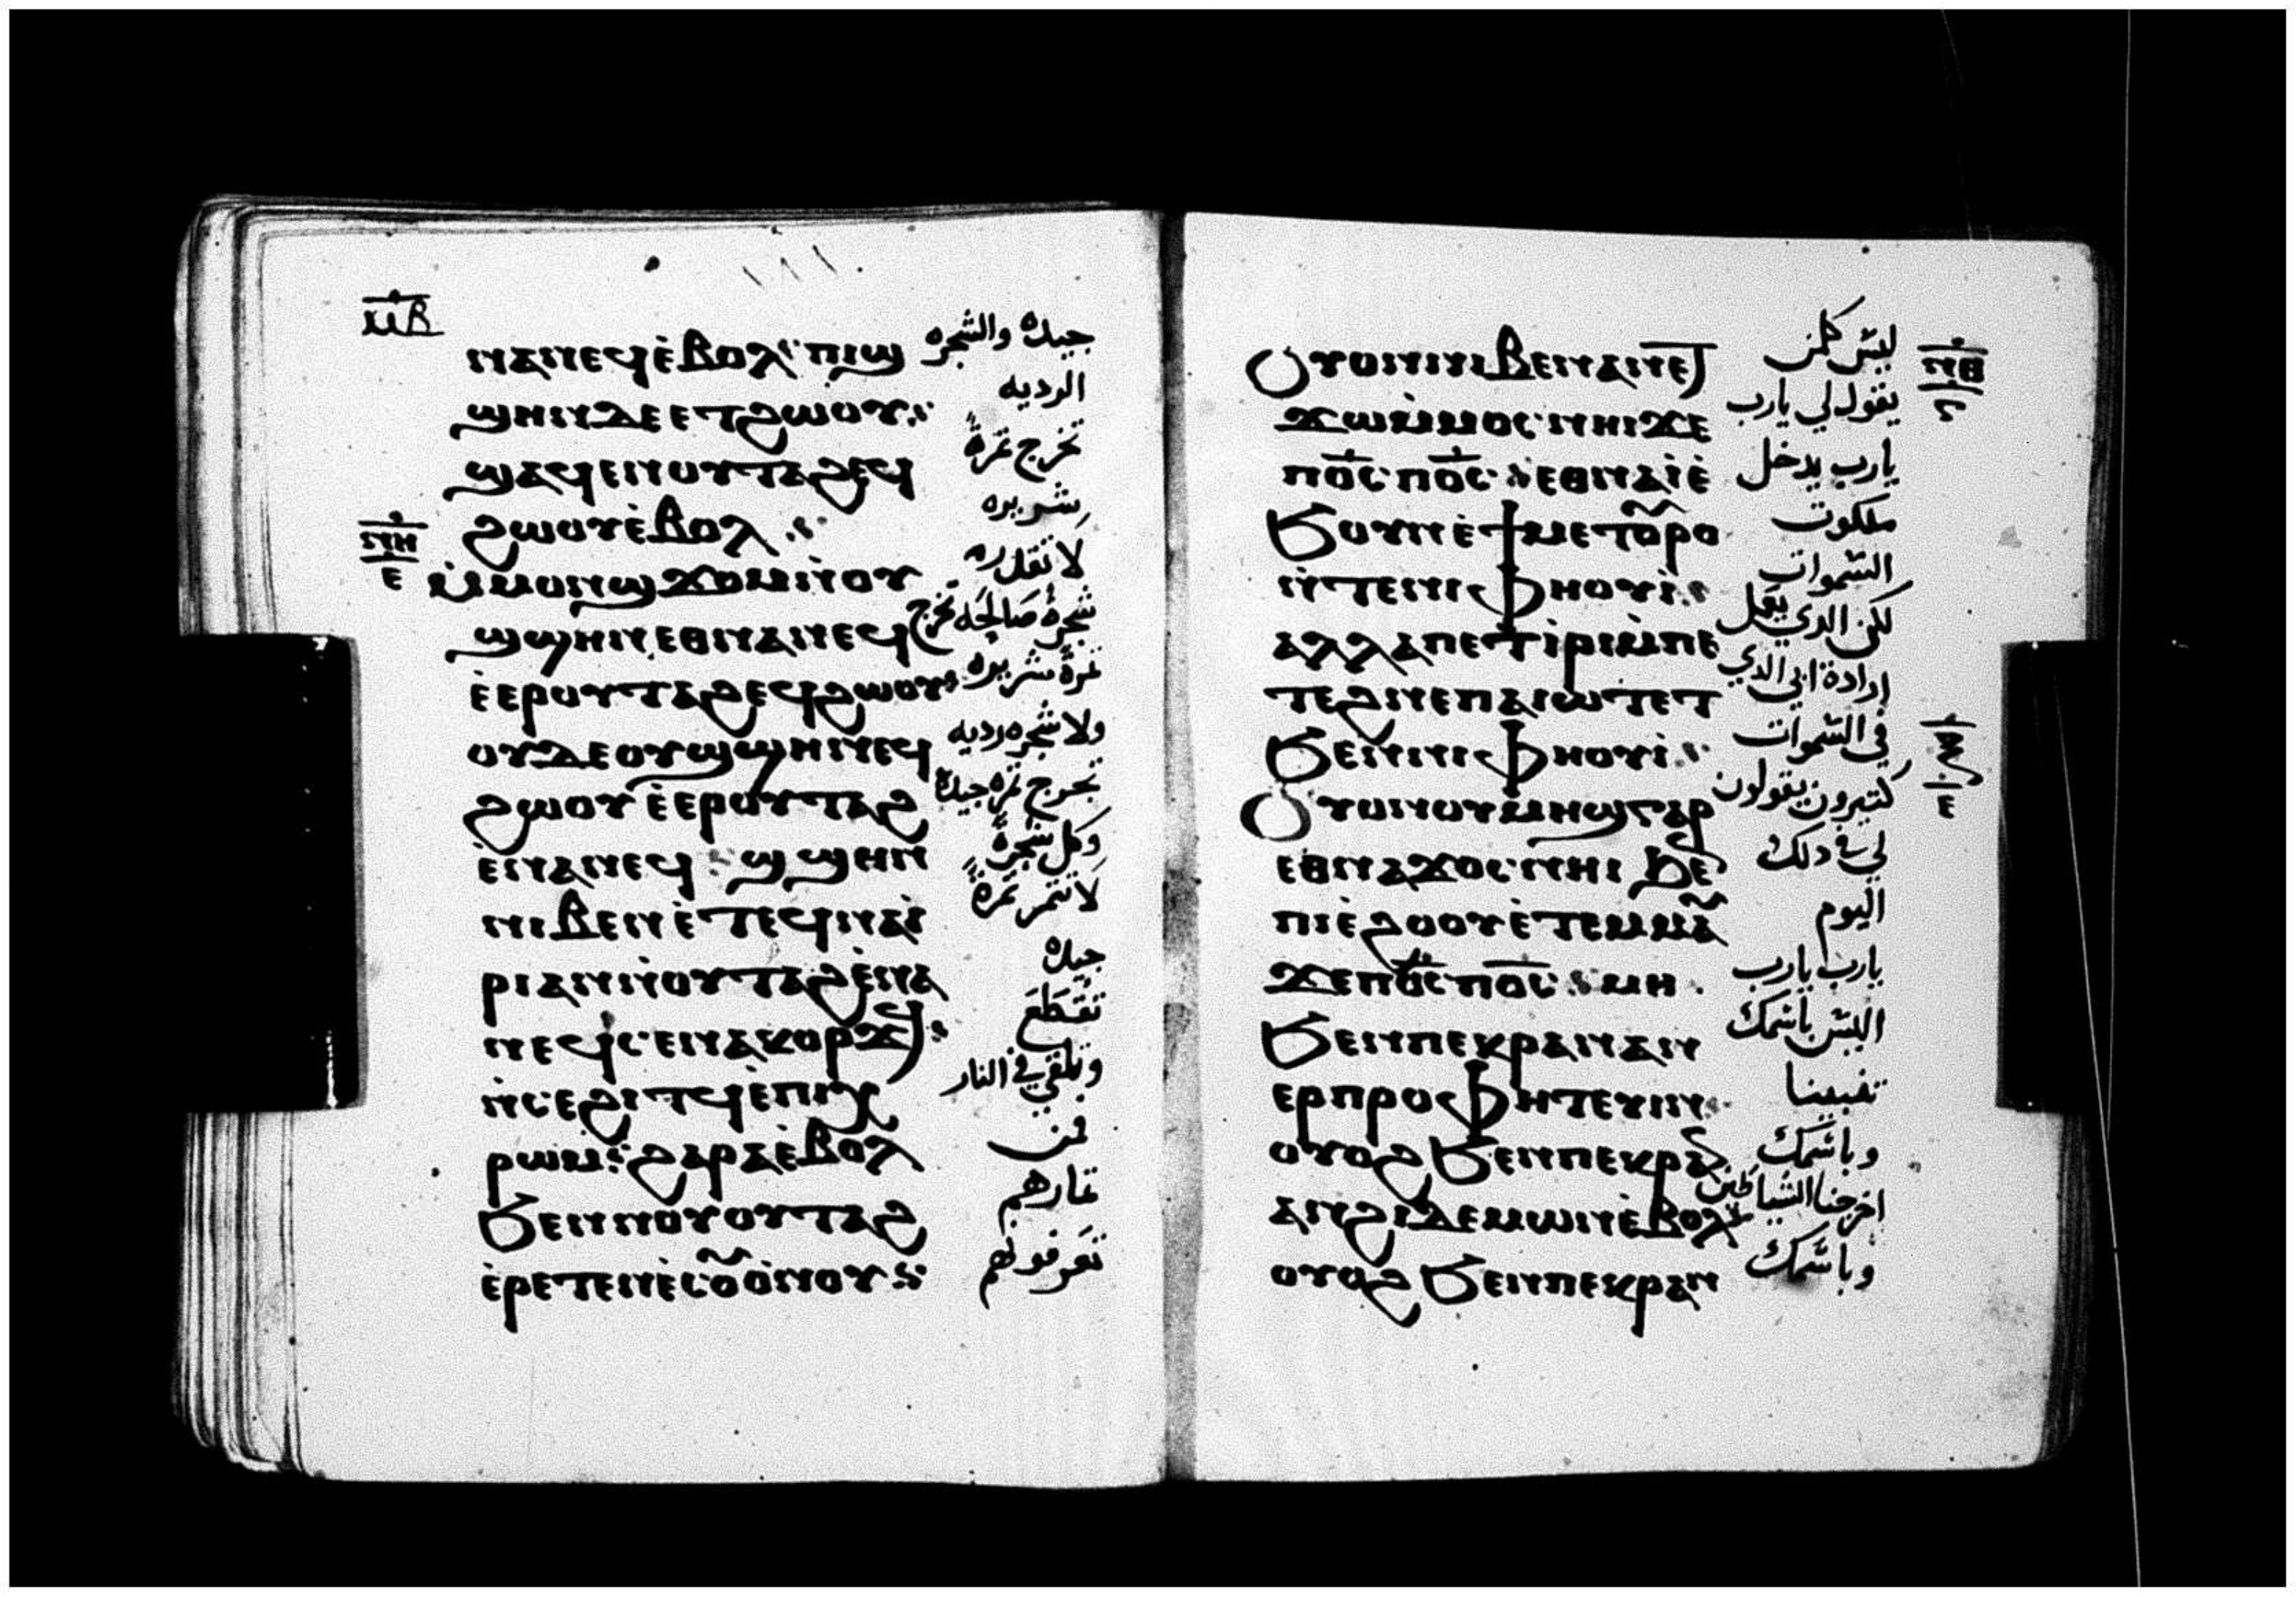 ⲙⲃ
ⲛⲁⲛⲉϥ ⲉ̀ⲃⲟⲗ : ⲡⲓϣ
ϣⲏⲛ ⲇⲉ ⲉⲧϩⲱⲟⲩ :
ϣⲁϥⲉⲛ ⲟⲩⲧⲁϩ ⲉϥ
ϩⲱⲟⲩ ⲉ̀ⲃⲟⲗ :
ⲙ̀ⲙⲟⲛ ϣϫⲟⲙ ⲛ̀ⲟⲩ
ϣϣⲏⲛ ⲉⲑⲛⲁⲛⲉϥ
ⲉ̀ⲉⲣ ⲟⲩⲧⲁϩ ⲉϥϩⲱⲟⲩ
ⲟⲩⲇⲉ ⲟⲩϣϣⲏⲛ ⲉϥ
ϩⲱⲟⲩ ⲉ̀ⲉⲣ ⲟⲩⲧⲁϩ
ⲉ̀ⲛⲁⲛⲉϥ : ϣϣⲏⲛ
ⲛⲓⲃⲉⲛ ⲉ̀ⲧⲉϥⲛⲁⲓ̀
ⲣⲓ ⲁⲛ ⲛ̀ⲟⲩⲧⲁϩ ⲉ̀ⲛⲁ
ⲛⲉϥ ⲥⲉⲛⲁⲕⲟⲣϫϥ :
ⲛ̀ⲥⲉϩⲓⲧϥ ⲉ̀ⲡⲓⲭ
ⲣⲱⲙ : ϩⲁⲣⲁ ⲉ̀ⲃⲟⲗ
ϧⲉⲛ ⲛⲟⲩⲟⲩⲧⲁϩ
ⲉ̀ⲣⲉⲧⲉⲛⲉ̀ⲥⲟⲩⲟ̀ⲛⲟⲩ :
جيده والشجره
الرديه
تخرج ثمرة
شريره
لا تقدر
شجرة صالحه تخرج
ثمرة شريره
ولا شجره رديه
تخرج ثمره جيدة
وكل شجرة
لا تثمر ثمرة
جيده
تقطع
وتلقى في النار
فمن
ثمارهم
تعرفونهم
ⲛⲏ
ⲉ
ⲟⲩⲟⲛ ⲛⲓⲃⲉⲛ ⲁⲛ ⲉⲧ
ϫⲱ ⲙ̀ⲙⲟⲥ ⲛⲏⲓ ϫⲉ
ⲡⲟ̅ⲥ̅ ⲡⲟ̅ⲥ̅ : ⲉⲑⲛⲁⲓ̀ ⲉ̀
ϧⲟⲩⲛ ⲉ̀ϯⲙⲉⲧⲟⲩⲣⲟ
ⲛ̀ⲧⲉ ⲛⲓⲫⲏⲟⲩⲓ̀ :
ⲁⲗⲗⲁ ⲡⲉⲧⲓ̀ⲣⲓ ⲙ̀ⲡⲉ
ⲧⲉϩⲛⲉ ⲡⲁⲓⲱⲧ ⲉⲧ
ϧⲉⲛ ⲛⲓⲫⲏⲟⲩⲓ̀ :
ⲟⲩⲟⲛ ⲟⲩⲙⲏϣ ⲅⲁⲣ
ⲉⲑⲛⲁϫⲟⲥ ⲛⲏⲓ ϧⲉⲛ
ⲡⲓⲉ̀ϩⲟⲟⲩ ⲉ̀ⲧⲉⲙⲙⲁⲩ
ϫⲉ ⲡⲟ̅ⲥ̅ ⲡⲟ̅ⲥ̅ : ⲙⲏ
ϧⲉⲛ ⲡⲉⲕⲣⲁⲛ ⲁⲛ
ⲉⲣⲡⲣⲟⲫⲏⲧⲉⲩⲓⲛ :
ⲟⲩⲟϩ ϧⲉⲛ ⲡⲉⲕⲣⲁⲛ
ⲁⲛϩⲓ ⲇⲉⲙⲱⲛ ⲉ̀ⲃⲟⲗ
ⲟⲩⲟϩ ϧⲉⲛ ⲡⲉⲕⲣⲁⲛ
ليس كلمن
يقول لي يارب
يارب يدخل
ملكوت
السموات
لكن الدي يعمل
ارادة ابي الدي
في السموات
كتيرون يقولون
لي في دلك
اليوم
يارب يارب
اليس باسمك
تنبينا
وباسمك
اخرجنا الشياطين
وباسمك
ⲛⲑ